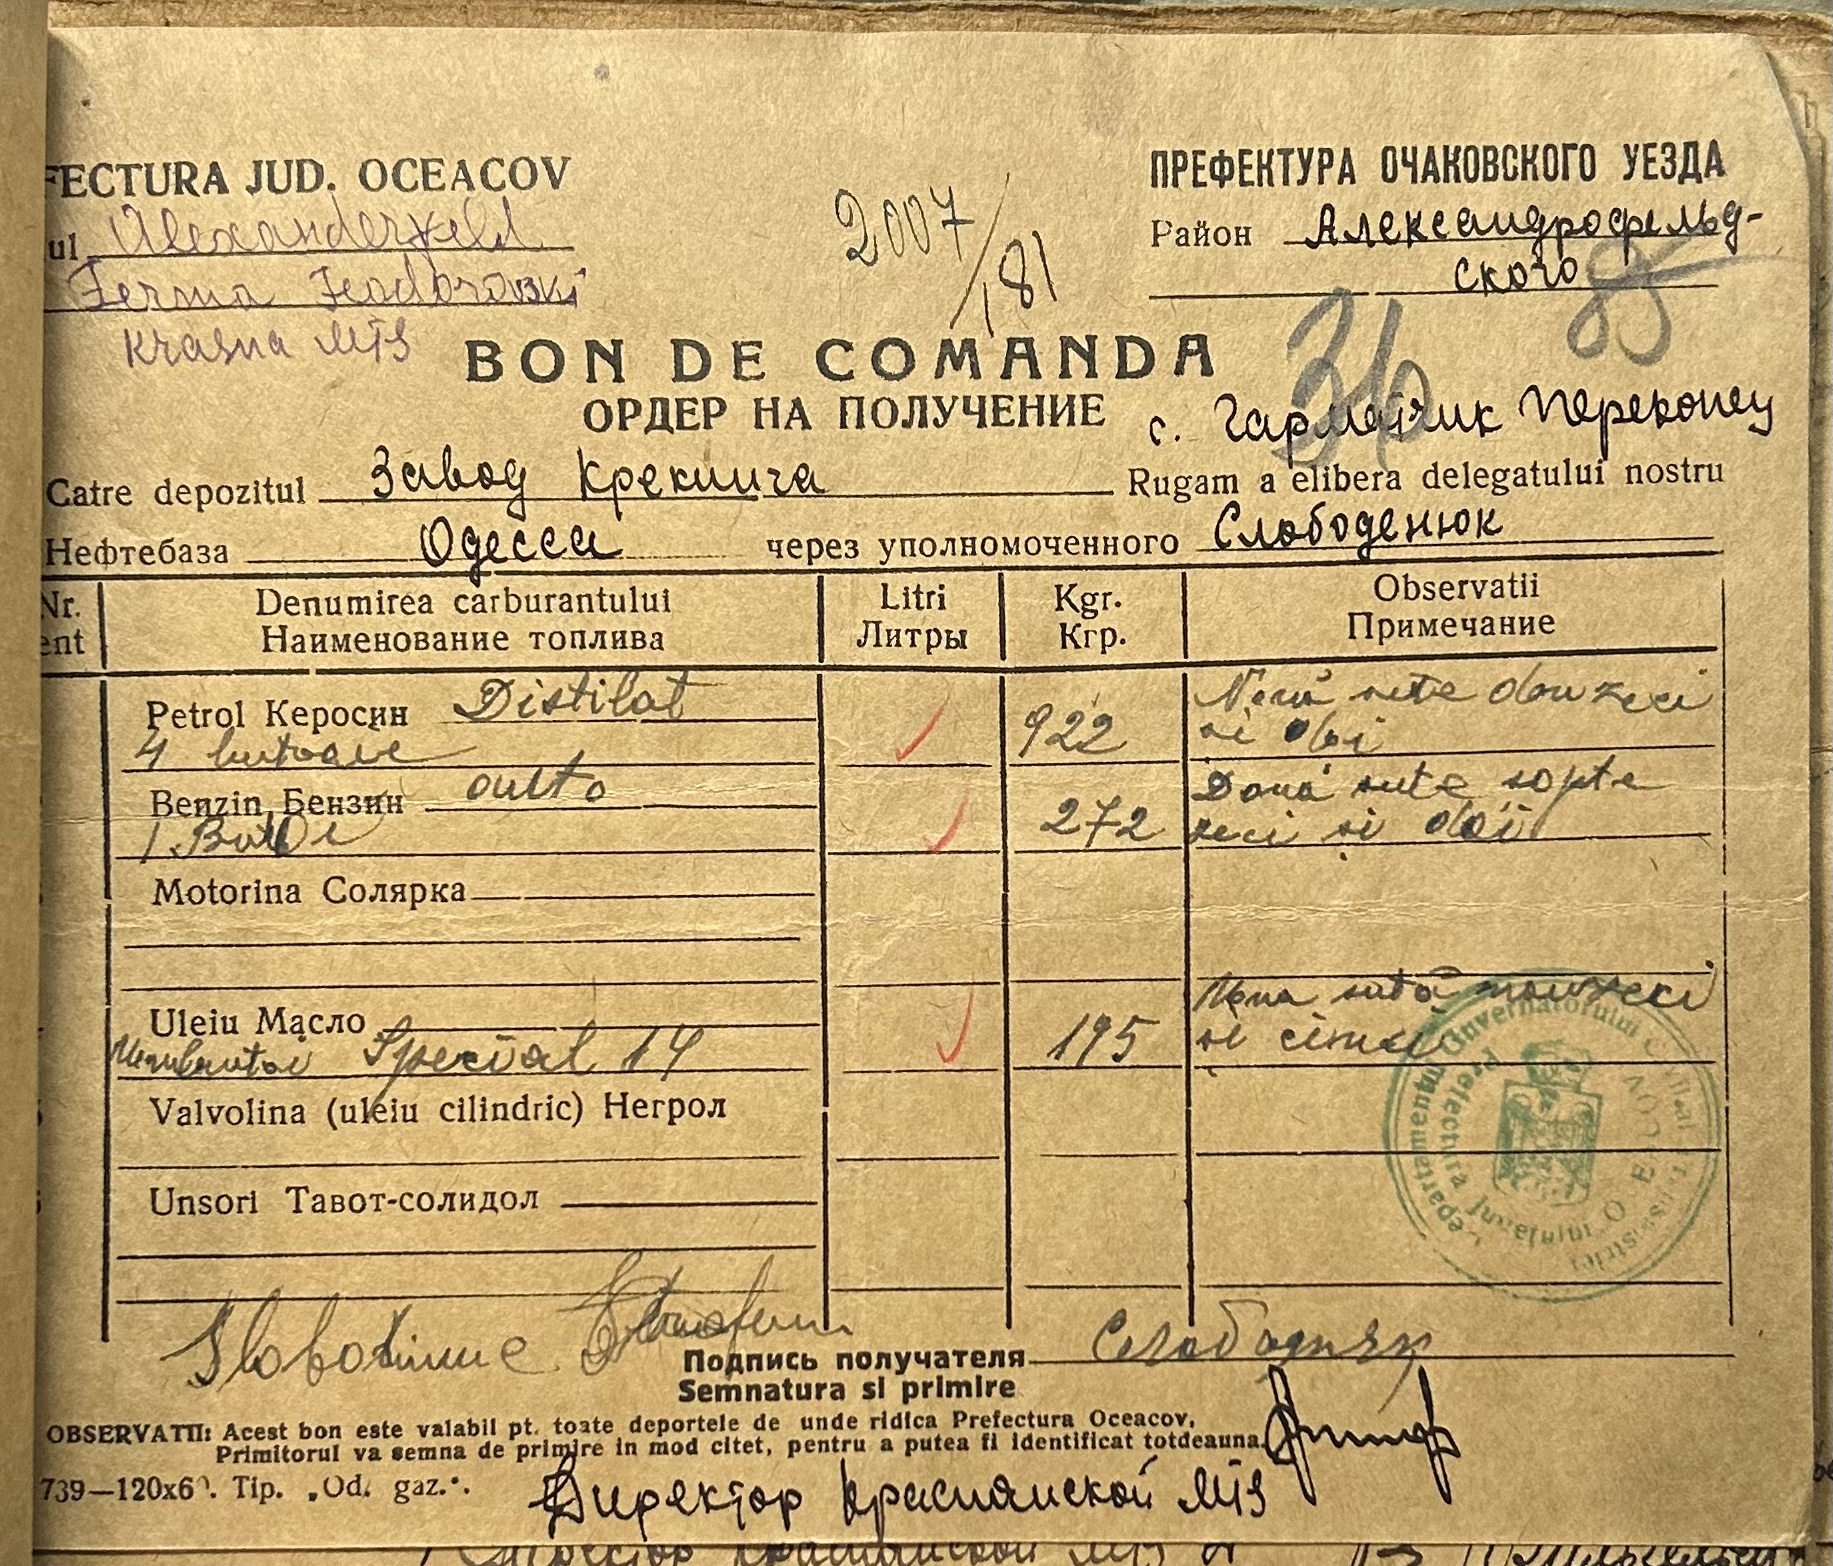 FECTURA JUD. OCEACOV
ПРЕФЕКТУРА ОЧАКОВСКОГО УЕЗДА
ul Alexanderfeld
2007/181
Район Александрофельд-
ского
Ferma Feodorovski
85
Krasna MTS
BON DE COMANDA
36
ОРДЕР НА ПОЛУЧЕНИЕ
с. Гармайчик Переконец
Catre depozitul Завод Крекинга Rugam a elibera delegatului nostru
Нефтебаза Одесса через уполномоченного Слободенюк
Nr. Denumirea carburantului Litri Kgr. Observatii
ent Наименование топлива Литры Кгр. Примечание
Petrol Керосин Distilat 922 Nouă sute douzeci
4 butoaie si doi
Benzin Бензин auto 272 Două sute sapte
1 Butoi zeci si doi
Motorina Солярка
Uleiu Масло 195 Una sută nouzeci
Special 14 si cinci
Valvolina (uleiu cilindric) Негрол
Unsori Тавот-солидол
Guvernatorului Civil al Transnistriei
Prefectura Județului Oceacov
Подпись получателя Слободнюк
Semnatura si primire
OBSERVATII: Acest bon este valabil pt. toate deportele de unde ridica Prefectura Oceacov.
Primitorul va semna de primire in mod citet, pentru a putea fi identificat totdeauna.
739—120x60. Tip. „Od. gaz.".
Директор Краснянской МТS